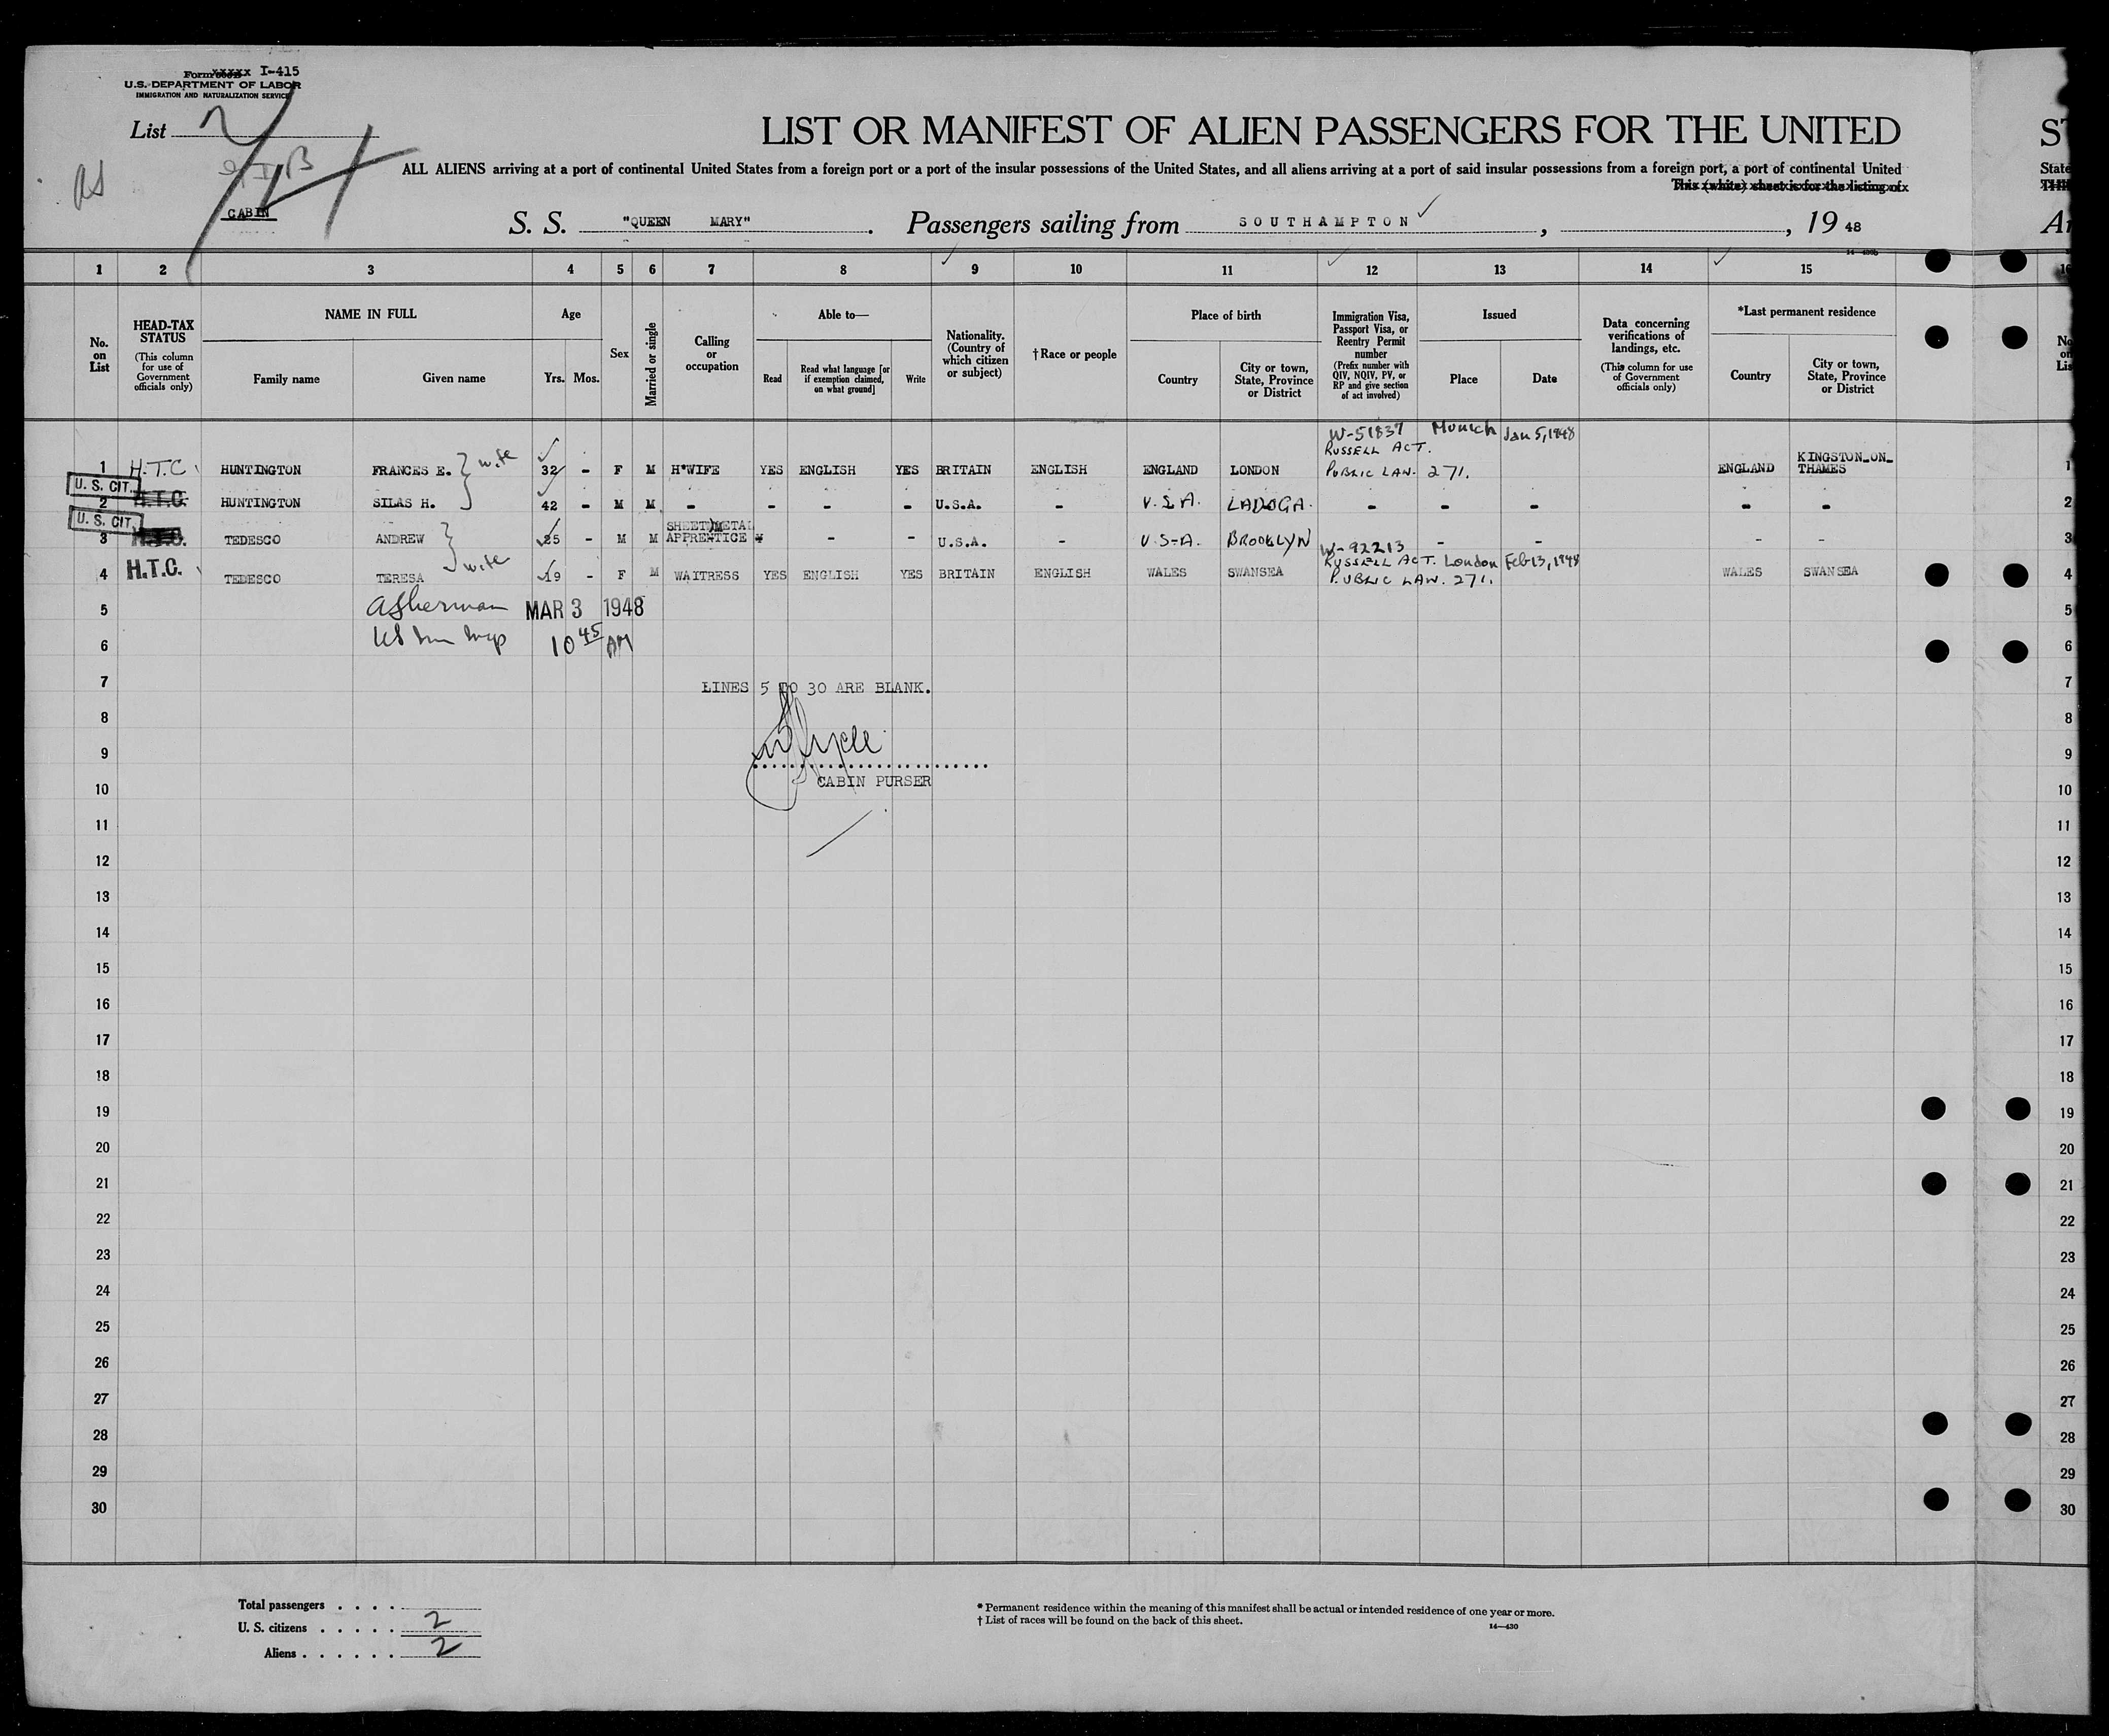 Form xxxxx I-415
U.S. DEPARTMENT OF LABOR
IMMIGRATION AND NATURALIZATION SERVICE
List 2
CABIN
LIST OR MANIFEST OF ALIEN PASSENGERS FOR THE UNITED
ALL ALIENS arriving at a port of continental United States from a foreign port or a port of the insular possessions of the United States, and all aliens arriving at a port of said insular possessions from a foreign port, a port of continental United
State
This (white) sheet is for the listing of
S. S. "QUEEN MARY". Passengers sailing from SOUTHAMPTON, , 19 48
1 2 3 4 5 6 7 8 9 10 11 12 13 14 15 16
No. on List
HEAD-TAX STATUS (This column for use of Government officials only)
NAME IN FULL
Family name Given name
Age
Yrs. Mos.
Sex
Married or single
Calling or occupation
Able to—
Read Read what language [or if exemption claimed, on what ground] Write
Nationality. (Country of which citizen or subject)
†Race or people
Place of birth
Country City or town, State, Province or District
Immigration Visa, Passport Visa, or Reentry Permit number (Prefix number with QIV, NQIV, PV, or RP and give section of act involved)
Issued
Place Date
Data concerning verifications of landings, etc. (This column for use of Government officials only)
*Last permanent residence
Country City or town, State, Province or District
W-51837 Munich Jan 5, 1948
RUSSELL ACT.
1 H.T.C. HUNTINGTON FRANCES E. wife 32 - F M H'WIFE YES ENGLISH YES BRITAIN ENGLISH ENGLAND LONDON PUBLIC LAW. 271. ENGLAND KINGSTON_ON_THAMES 1
U. S. CIT.
2 H.T.C. HUNTINGTON SILAS H. 42 - M M - - - - U.S.A. - U.S.A. LADOGA. - - - - - 2
U. S. CIT.
3 TEDESCO ANDREW 25 - M M SHEET METAL APPRENTICE - - U.S.A. - U.S.A. BROOKLYN - - - - 3
W-92213
RUSSELL ACT. London Feb 13, 1948
4 H.T.C. TEDESCO TERESA wife 19 - F M WAITRESS YES ENGLISH YES BRITAIN ENGLISH WALES SWANSEA PUBLIC LAW. 271. WALES SWANSEA 4
5 MAR 3 1948 5
6 10 45 AM 6
7 LINES 5 TO 30 ARE BLANK. 7
8 8
9 9
10 CABIN PURSER 10
11 11
12 12
13 13
14 14
15 15
16 16
17 17
18 18
19 19
20 20
21 21
22 22
23 23
24 24
25 25
26 26
27 27
28 28
29 29
30 30
Total passengers . . . .
U. S. citizens . . . . . 2
Aliens . . . . . . 2
* Permanent residence within the meaning of this manifest shall be actual or intended residence of one year or more.
† List of races will be found on the back of this sheet.
14—430